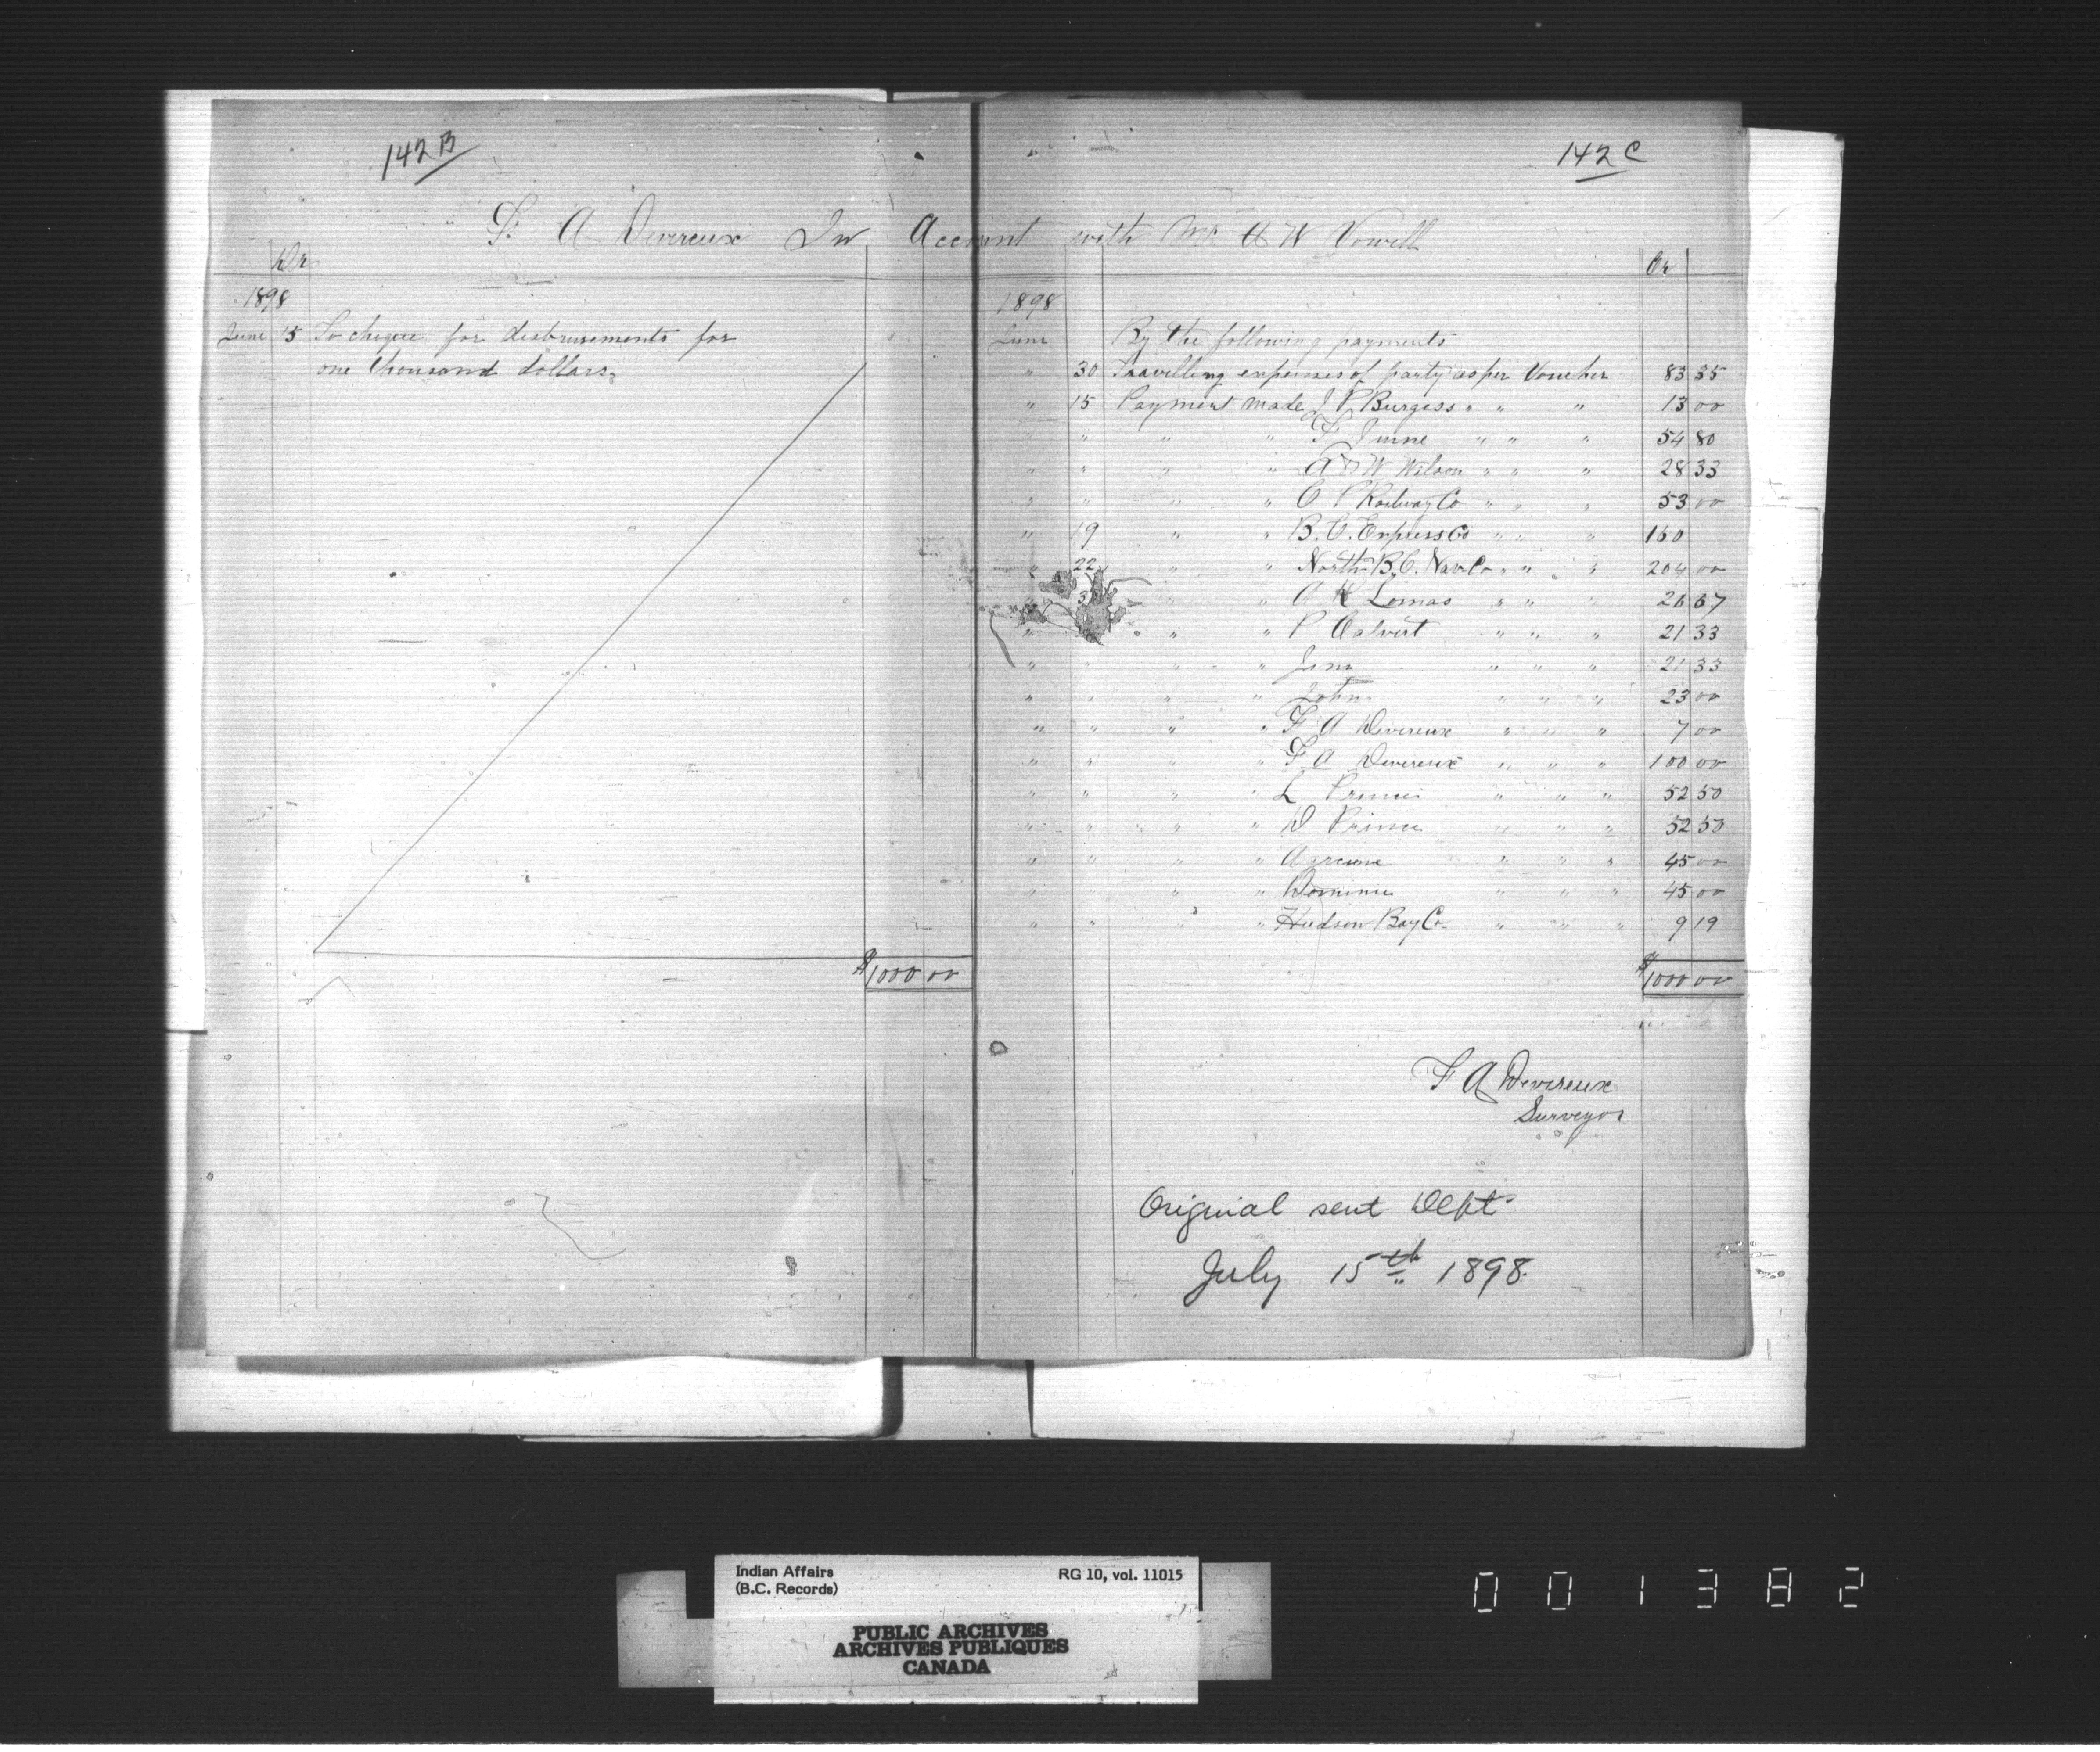 142 B
142 C
F. A Devereux In Account with Mr A W Vowell
Dr
Cr
1898
June 15 To cheque for disbursements for
one thousand dollars.
$1000 00
1898
June By the following payments
" 30 Travelling expenses of party as per Voucher 83 35
" 15 Payment made J P Burgess " " " 13 00
" " " " F Jeune " " " 54 80
" " " " A & W Wilson " " " 28 33
" " " " C P Railway Co " " " 53 00
" 19 " " B. C. Express Co " " " 160
" 22 " " North B. C. Nav Co " " " 204 00
" " " A H Lomas " " " 26 67
" " " P Calvert " " " 21 33
" " " " Jim " " " 21 33
" " " " John " " " 23 00
" " " " F A Devereux " " " 7 00
" " " " F A Devereux " " " 100 00
" " " " L " " " 52 50
" " " " D Prince " " " 52 50
" " " " " " " 45 00
" " " " " " " 45 00
" " " " Hudson Bay Co " " " 9 19
$1000 00
F A Devereux
Surveyor
Original sent Dept
July 15th 1898.
Indian Affairs
(B.C. Records)
RG 10, vol. 11015
PUBLIC ARCHIVES
ARCHIVES PUBLIQUES
CANADA
001382